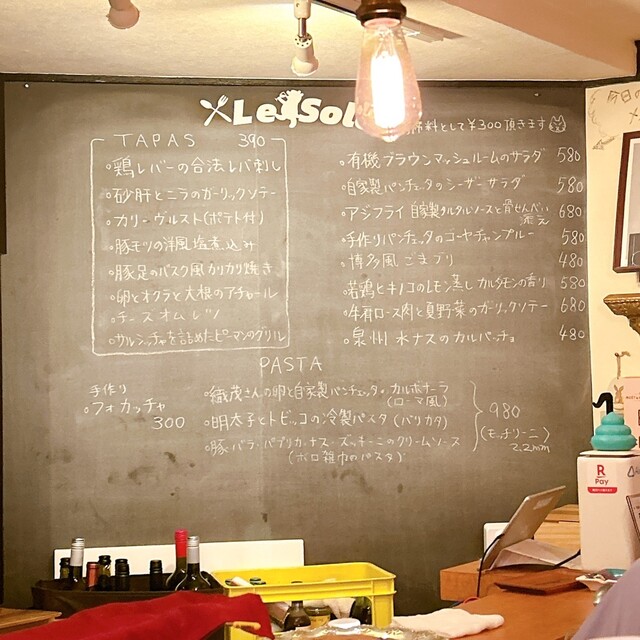 Le Sol
料として¥300頂きます
TAPAS 390
鶏レバーの合法レバ刺し
砂肝とニラのガーリックソテー
カリーヴルスト(ポテト付)
豚モツの洋風塩煮込み
豚足のバスク風カリカリ焼き
卵とオクラと大根のアチャール
チーズオムレツ
サルシッチャを詰めたピーマンのグリル
有機ブラウンマッシュルームのサラダ 580
自家製パンチェッタのシーザーサラダ 580
アジフライ 自家製タルタルソースと骨せんべい 680
添え
手作りパンチェッタのゴーヤチャンプルー 580
博多風ごまブリ 480
若鶏とキノコのレモン蒸し カルダモンの香り 580
牛肩ロース肉と夏野菜のガーリックソテー 680
泉州 水ナスのカルパッチョ 480
PASTA
手作り
フォカッチャ
300
織茂さんの卵と自家製パンチェッタのカルボナーラ
(ローマ風)
明太子とトビッコの冷製パスタ(バリカタ)
豚バラ・パプリカ・ナス・ズッキーニのクリームソース
(ボロ雑巾のパスタ)
980
(モッチリーニ)
2.2mm
今日の
R
Pay